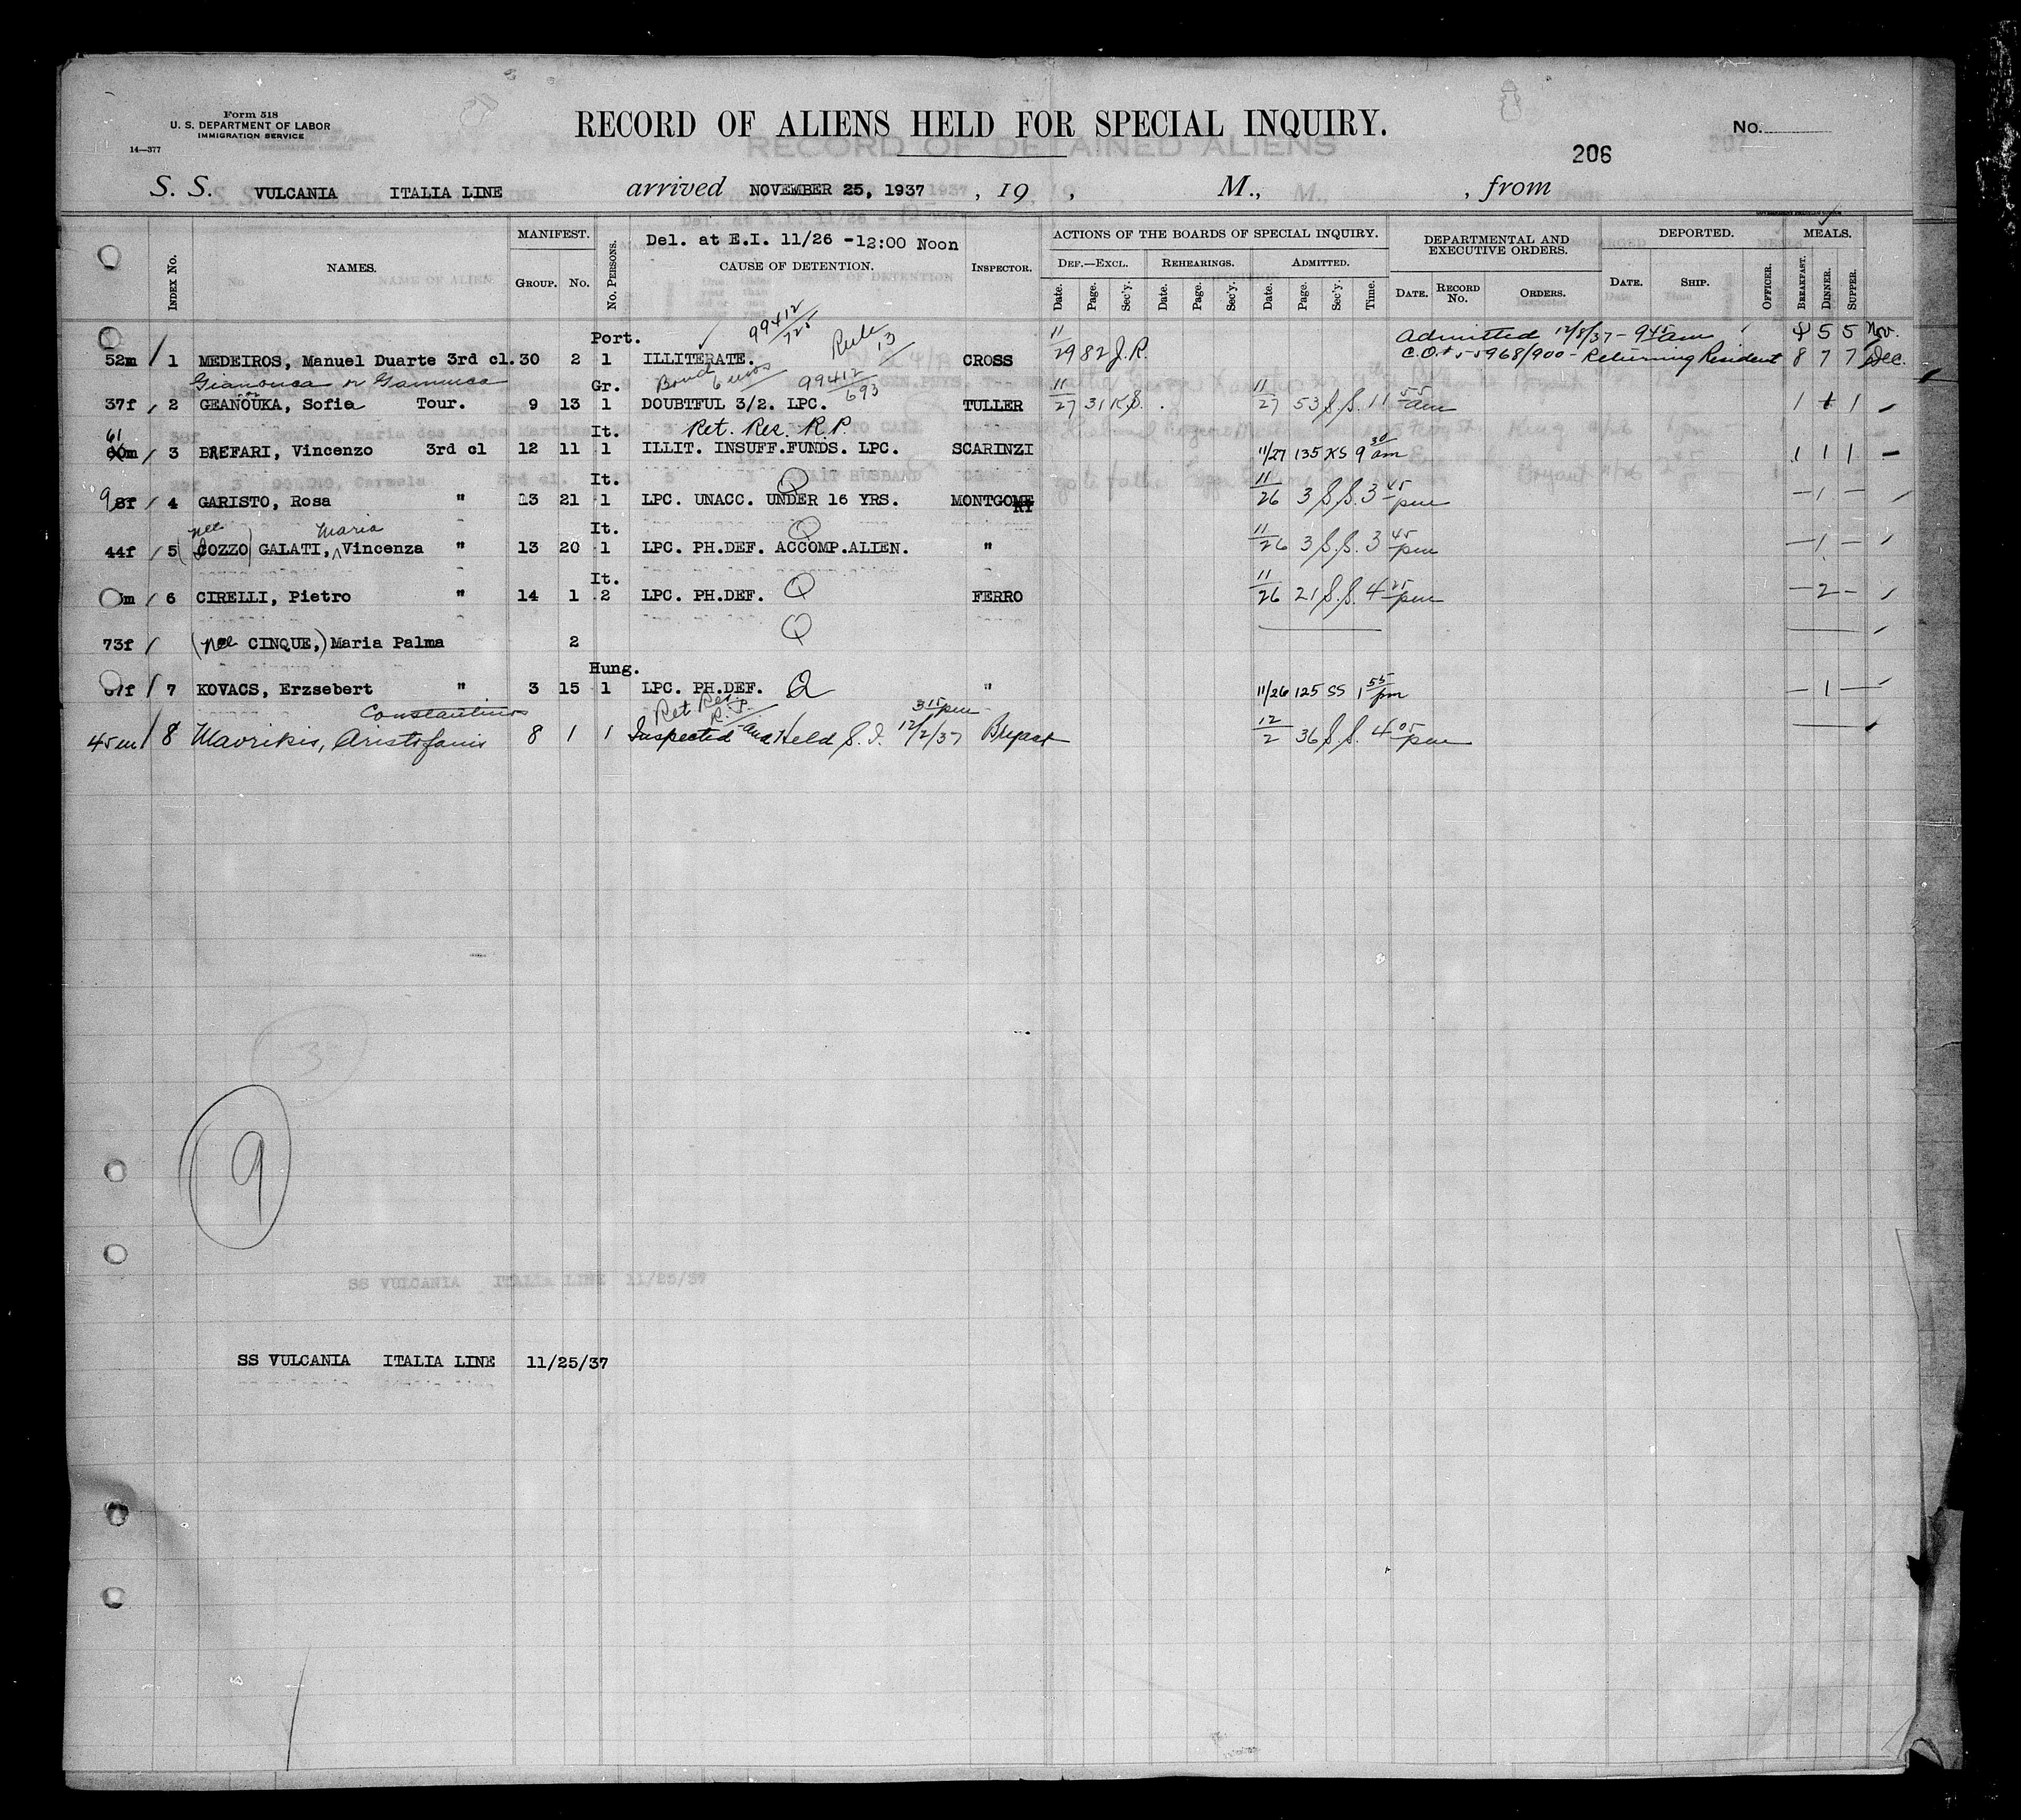 Form 518
U. S. DEPARTMENT OF LABOR
IMMIGRATION SERVICE
14—377
RECORD OF ALIENS HELD FOR SPECIAL INQUIRY.
No.
206
S. S. VULCANIA ITALIA LINE arrived NOVEMBER 25, 1937, 19 , M., , from
INDEX No. NAMES. MANIFEST. GROUP. No. No. PERSONS. Del. at E.I. 11/26 -12:00 Noon CAUSE OF DETENTION. INSPECTOR. ACTIONS OF THE BOARDS OF SPECIAL INQUIRY. DEPARTMENTAL AND EXECUTIVE ORDERS. DEPORTED. MEALS.
DEF.—EXCL. REHEARINGS. ADMITTED.
Date. Page. Sec'y. Date. Page. Sec'y. Date. Page. Sec'y. Time. DATE. RECORD No. ORDERS. DATE. SHIP. OFFICER. BREAKFAST. DINNER. SUPPER.
Port. 99412/725 Rule 13 Admitted 12/8/37 - 9 45 am 5 5 Nov.
52m 1 MEDEIROS, Manuel Duarte 3rd cl. 30 2 1 ILLITERATE. CROSS 11/29 82 J.R. C.O. 55968/900 - Returning Resident 8 7 7 Dec.
Gianouca or Gamuca Gr. Bond 6 mos 99412/693
37f 2 GEANOUKA, Sofia Tour. 9 13 1 DOUBTFUL 3/2. LPC. TULLER 11/27 31 K.S. 11/27 53 S.S. 11 55 am 1 1 1
61 It. Ret. Res. R.P.
60m 3 BREFARI, Vincenzo 3rd cl 12 11 1 ILLIT. INSUFF.FUNDS. LPC. SCARINZI 11/27 135 KS 9 30 am 1 1 1 —
It. Q
9 8f 4 GARISTO, Rosa " 13 21 1 LPC. UNACC. UNDER 16 YRS. MONTGOMERY 11/26 3 S.S. 3 45 pm — 1 —
nee Maria It. Q
44f 5 (COZZO) GALATI, Vincenza " 13 20 1 LPC. PH.DEF. ACCOMP.ALIEN. " 11/26 3 S.S. 3 45 pm — 1 —
It.
m 6 CIRELLI, Pietro " 14 1 2 LPC. PH.DEF. Q FERRO 11/26 21 S.S. 4 25 pm — 2 —
73f (nee CINQUE,) Maria Palma 2 Q
Hung.
67f 7 KOVACS, Erzsebert " 3 15 1 LPC. PH.DEF. Q " 11/26 125 SS 1 55 pm — 1 —
Constantinos Ret Res. R.P. 3 15 pm
45m 8 Mavrikis, Aristofanis 8 1 1 Inspected and Held S.I. 12/2/37 Bryant 12/2 36 S.S. 4 05 pm
9
SS VULCANIA ITALIA LINE 11/25/37